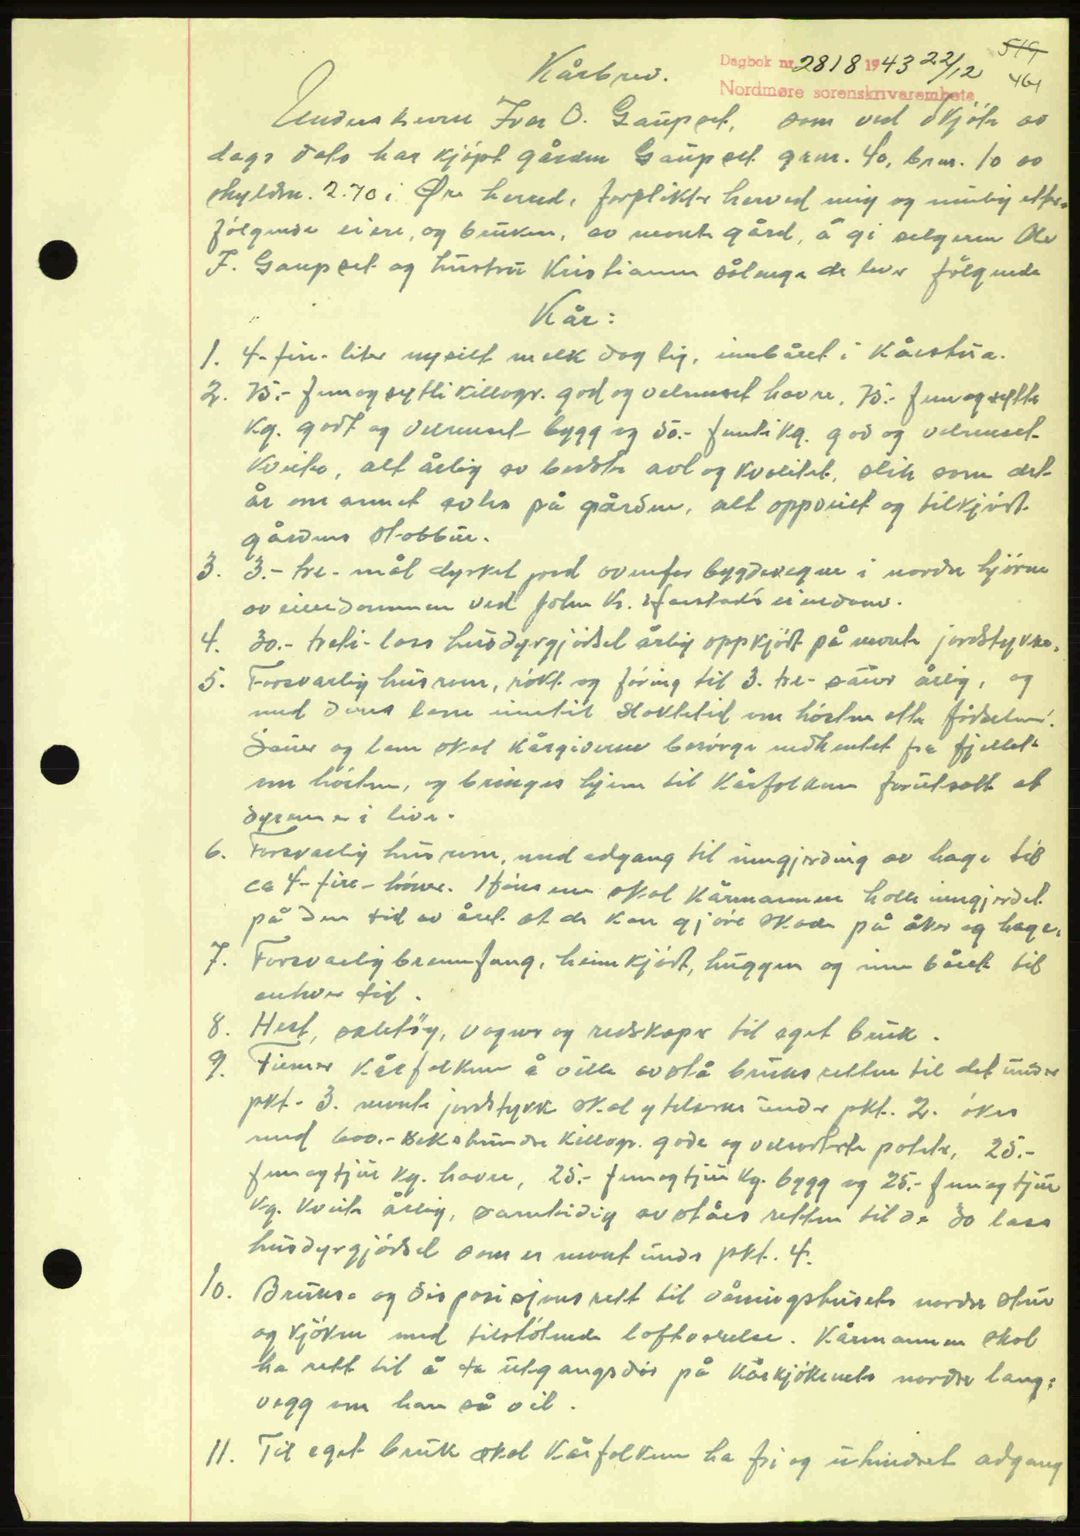 Kårbrev.
Dagbok nr. 2818 1943 22/12
Nordmøre sorenskriverembete
519
461
Undertegnede Iver O. Gaupset, som ved skjöte av
dags dato har kjöpt gården Gaupset grnr. 40, brnr. 10 av
skyldm. 2.70 i Øre herred, forplikter herved mig og mulig etter-
følgende eiere, og brukere, av nevnte gård, å gi selgeren Ole
I. Gaupset og hustru Kristianne sålenge de lever følgende
Kår:
1. 4-fire- liter nysilt melk daglig, innbåret i Kårstua.
2. 75.- femogsytti killogr. god og velrenset havre, 75.- femogsytti
kg. godt og velrenset bygg og 50.- femti kg. god og velrenset
kveite, alt årlig av bedste avl og kvalitet, slik som det
år om annet avles på gården, alt oppveiet og tilkjört
gårdens stabbur.
3. 3.- tre- mål dyrket jord ovenfor bygdevegen i nordre hjörne
av eiendommen ved John K. Harstads eiendom.
4. 30.- treti- lass husdyrgjödsel årlig oppkjört på nevnte jordstykke.
5. Forsvarlig husrum, rökt og foring til 3. tre- sauer årlig, og
med deres lam inntil slaktetid om hösten etter födselen.
Sauer og lam skal kårgiveren besörge nedhentet fra fjellet
om hösten, og bringes hjem til Kårfolkene forutsatt at
dyrene er i live.
6. Forsvarlig husrum, med adgang til inngjerding av hage til
ca 4-fire- höner. Hönsene skal kårmannen holde inngjerdet
på den tid av året at de kan gjöre skade på åker og hage.
7. Forsvarlig brennfang, heimkjört, huggen og innbåret til
enhver tid.
8. Hest, seletöy, vogner og redskaper til eget bruk.
9. Finner Kårfolkene å ville avstå bruksretten til det under
pkt. 3. nevnte jordstykke skal ytelserne under pkt. 2. ökes
med 600.- sekshundre killogr. gode og velsorterte poteter, 25.-
femogtjue kg. havre, 25.- femogtjue kg. bygg og 25.- femogtjue
kg. kveite årlig, samtidig avståes retten til de 30 lass
husdyrgjödsel som er nevnt under pkt. 4.
10. Bruks- og disposisjonsrett til våningshusets nordre stue
og kjöken med tilstötende loftværelse. Kårmannen skal
ha rett til å ta utgangsdör på Kårkjökenets nordre lang-
vegg om han så vil.
11. Til eget bruk skal Kårfolkene ha fri og uhindret adgang